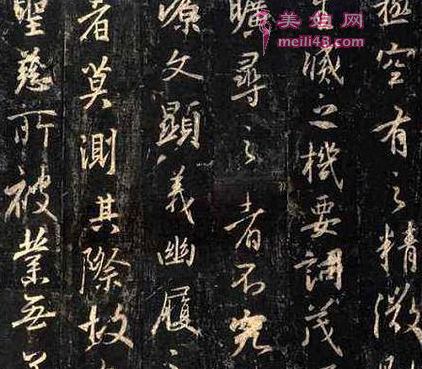 極空有之精微
滅之機要詞茂
曠尋之者不究
源文顯義幽履之
者莫測其際故
聖慈所被業無
meili43.com